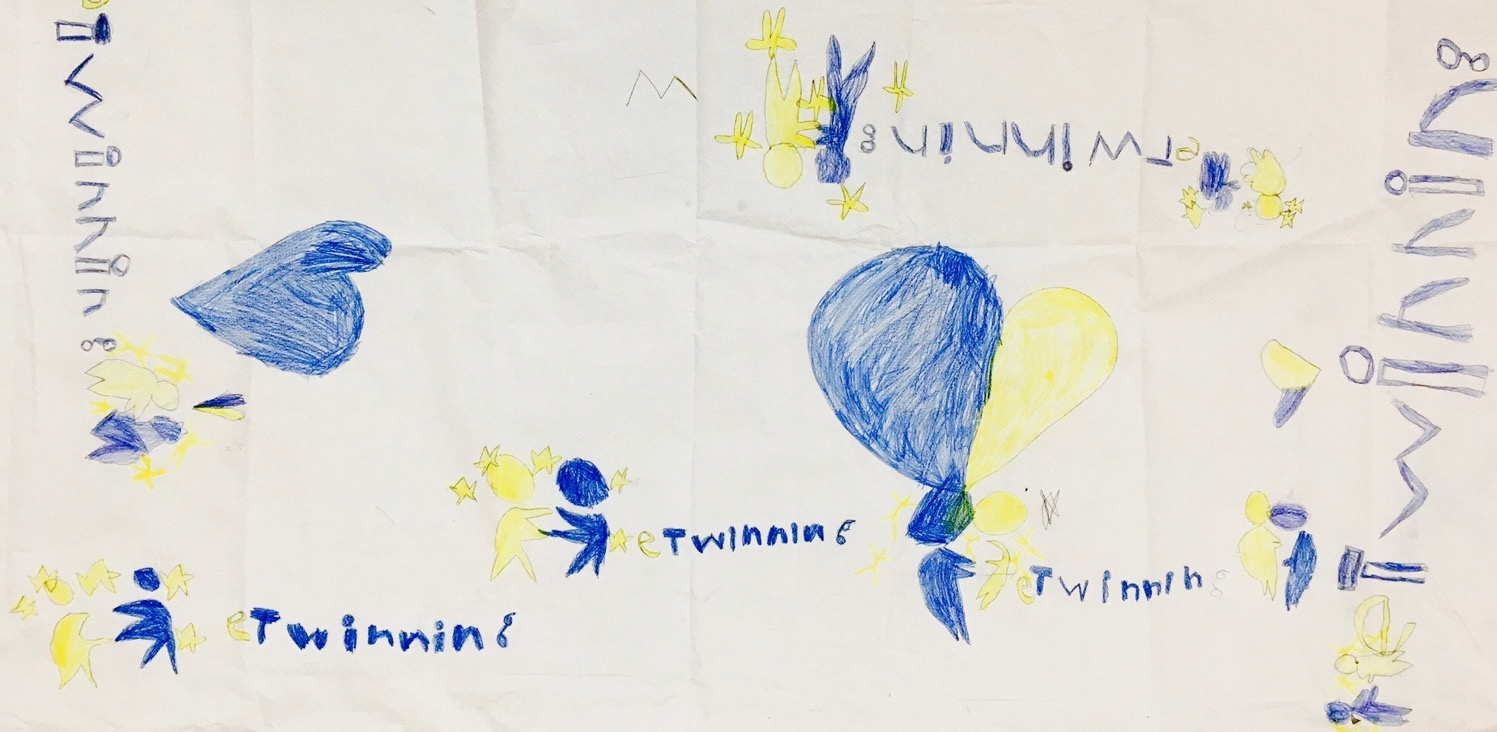 eTwinning
eTwinning
eTwinning
eTwinning
eTwinning
eTwinning